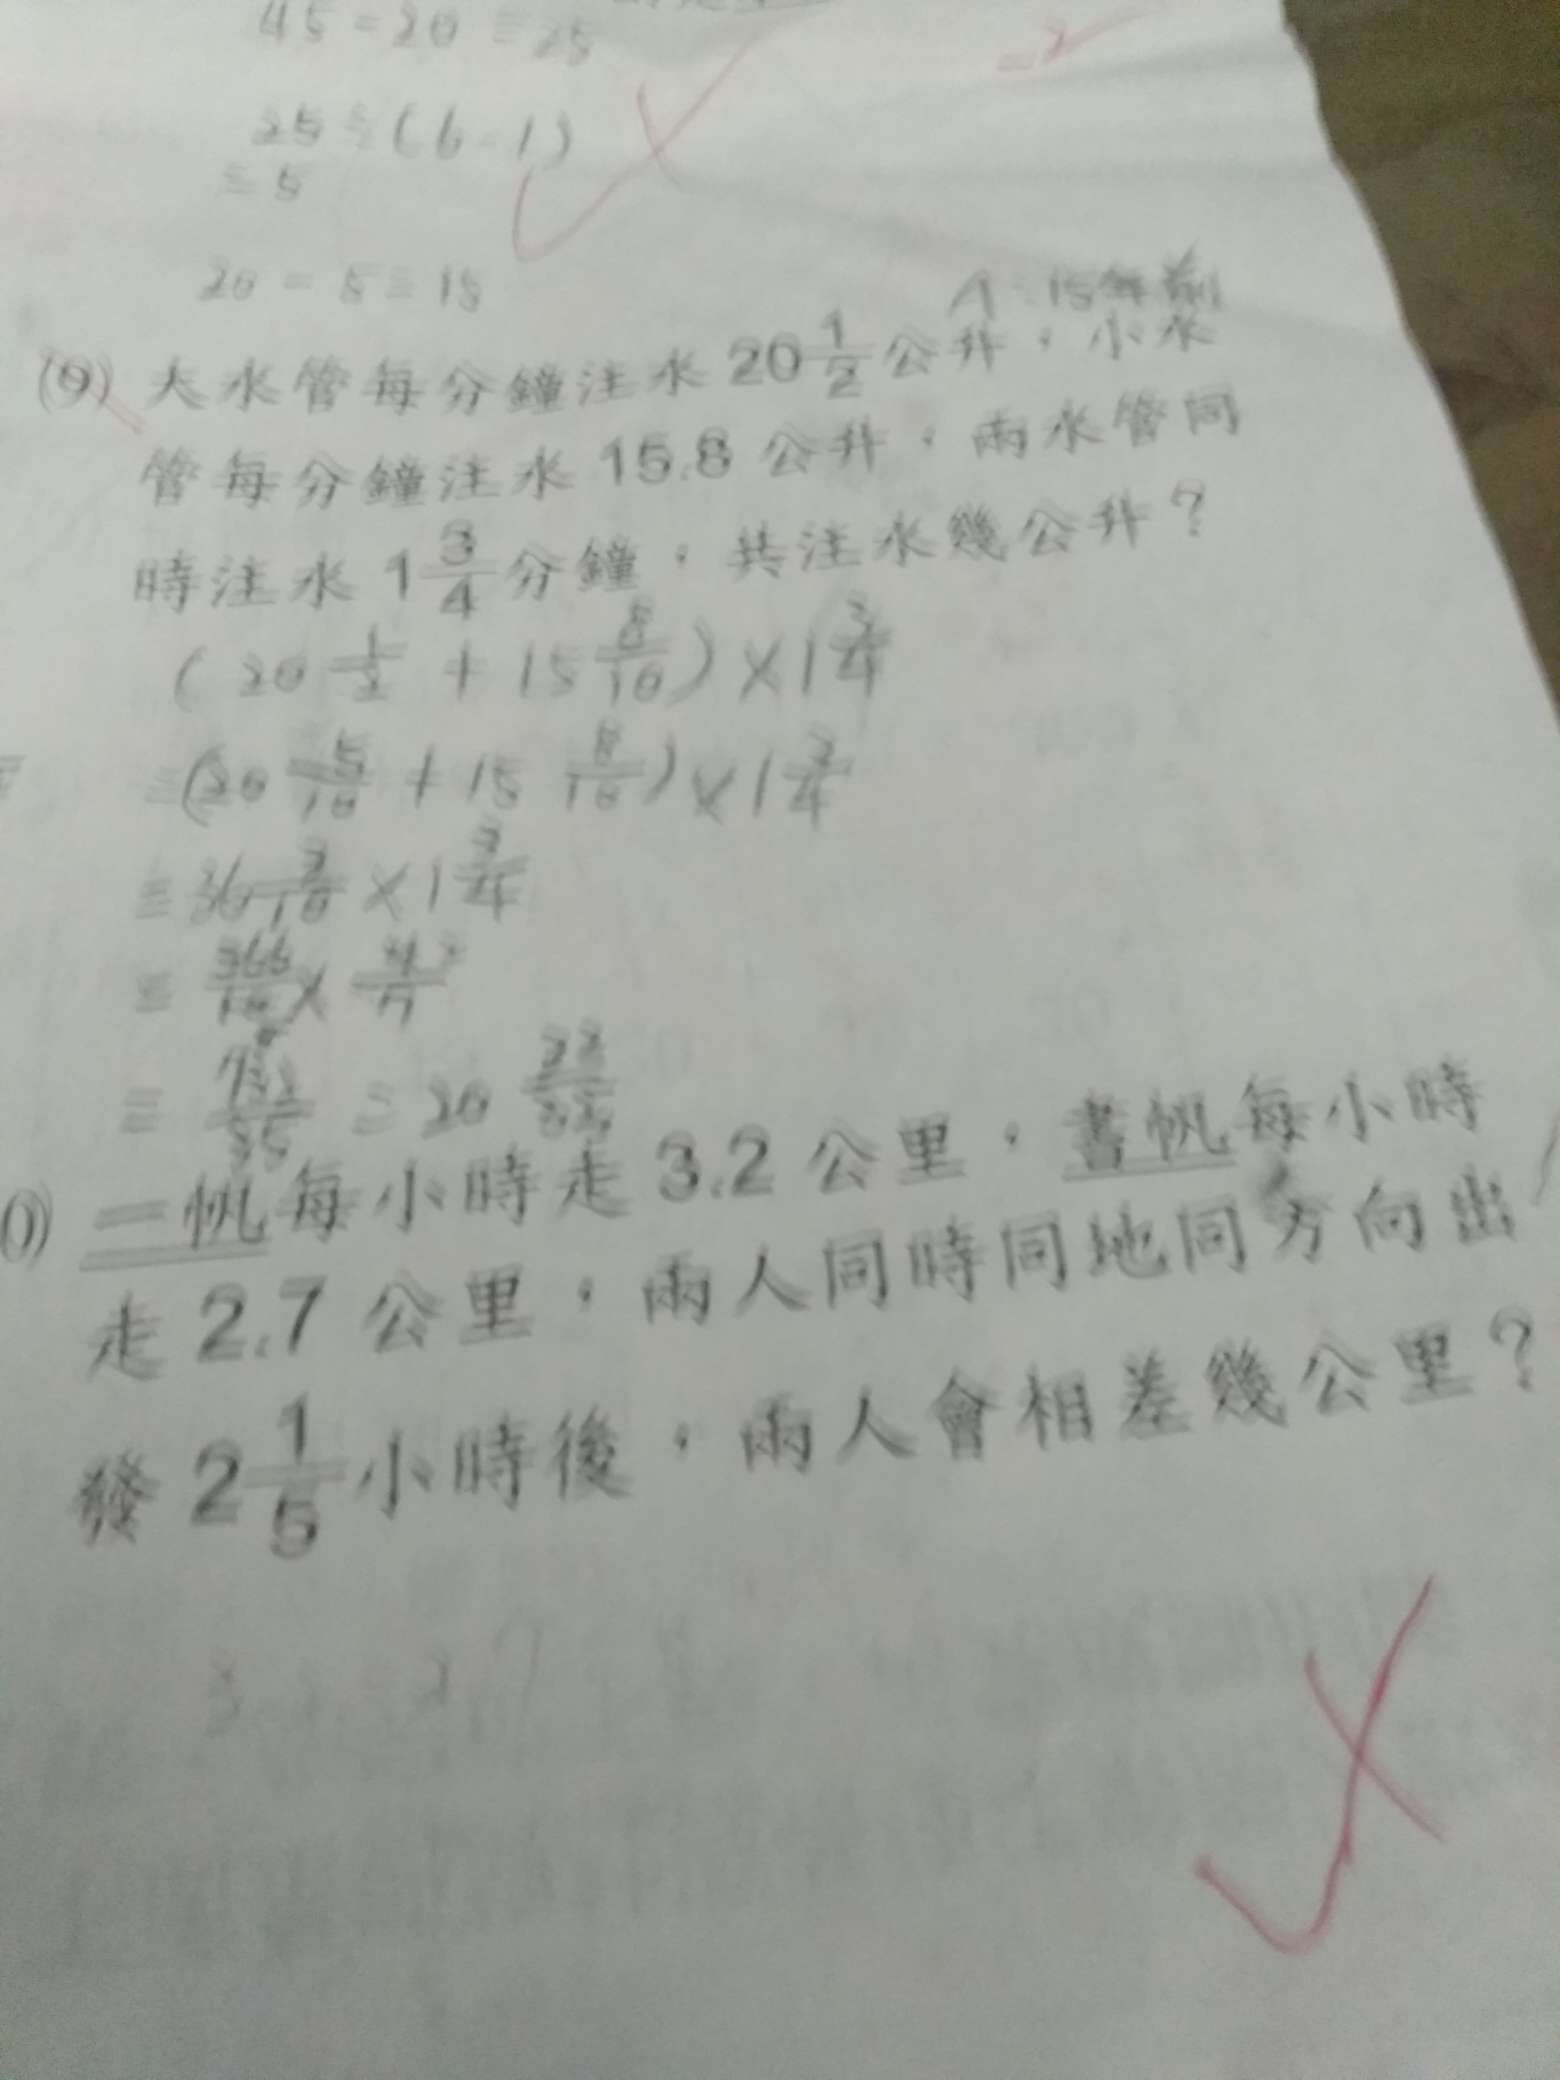 45-20=25
25÷(6-1)
=5
20-5=15
A:15年前
(9) 大水管每分鐘注水20 1/2公升，小水
管每分鐘注水15.8公升，兩水管同
時注水1 3/4分鐘，共注水幾公升？
(20 1/2 + 15 8/10)×1 3/4
=(20 5/10 + 15 8/10)×1 3/4
=36 3/10×1 3/4
= 366/10 × 4/7
= 732/35 = 20 32/35
0) 一帆每小時走3.2公里，書帆每小時
走2.7公里，兩人同時同地同方向出
發2 1/5小時後，兩人會相差幾公里？